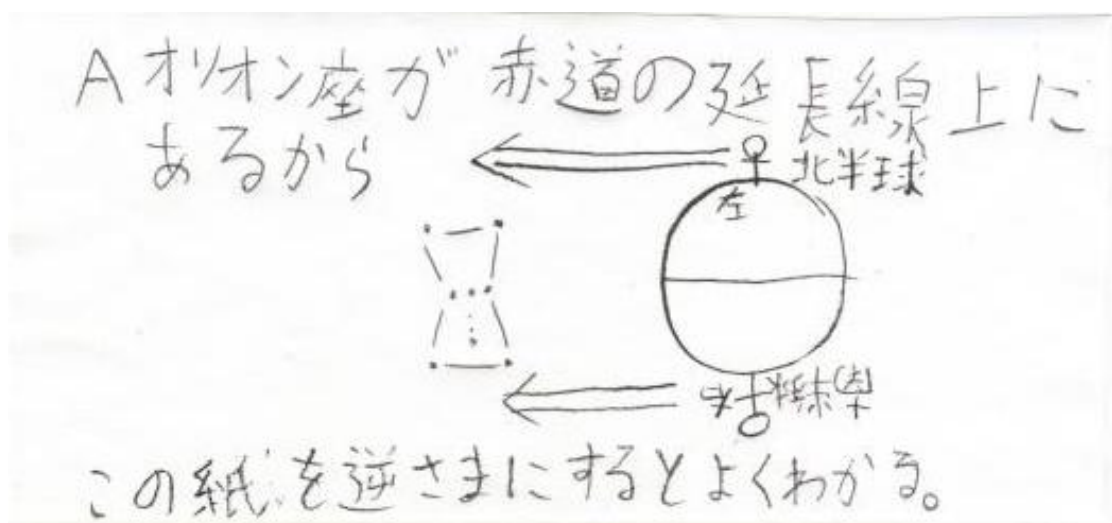 A オリオン座が赤道の延長線上に
あるから
北半球
左
右
南半球
この紙を逆さまにするとよくわかる。